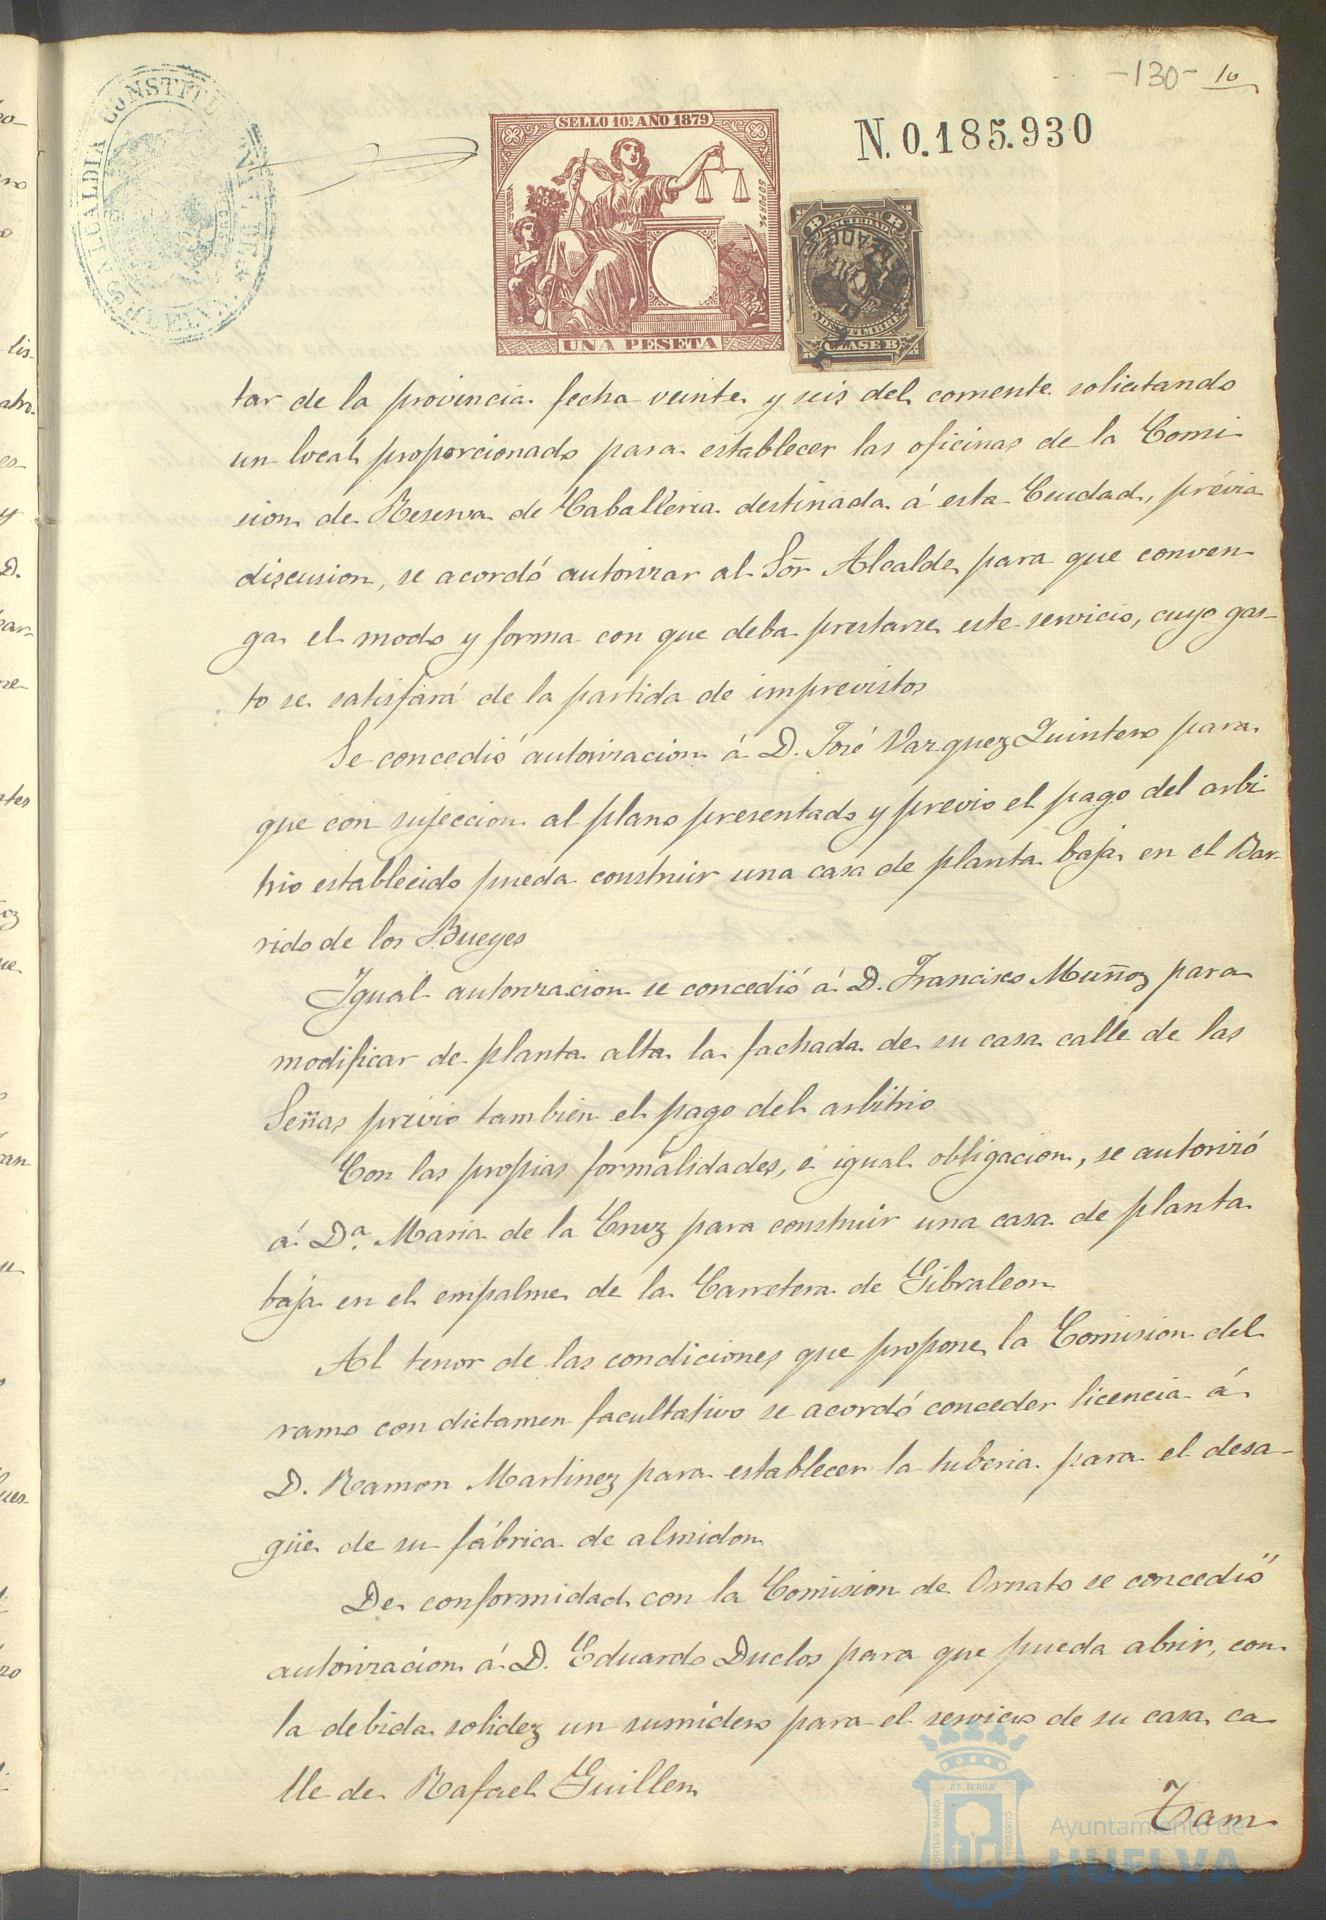 -130- 10
ALCALDIA CONSTITU
HUELVA
SELLO 10º AÑO 1879
N. 0.185.930
SOCIEDAD
DEL TIMBRE
CLASE B
UNA PESETA
tar de la provincia fecha veinte y seis del corriente solicitando
un local proporcionado para establecer las oficinas de la Comi
sion de Reserva de Caballeria destinada á esta Ciudad, prévia
discusion, se acordó autorizar al Sõr Alcalde para que conven
ga el modo y forma con que deba prestarse este servicio, cuyo gas-
to se satisfará de la partida de imprevistos
Se concedió autorizacion á D. José Vazquez Quintero para
que con sujeccion al plano presentado y previo el pago del arbi
trio establecido pueda construir una casa de planta baja en el Bar-
rido de los Bueyes
Igual autorizacion se concedió á D. Francisco Muñoz para
modificar de planta alta la fachada de su casa calle de las
Señas prévio tambien el pago del arbitrio
Con las propias formalidades, é igual obligacion, se autorizó
á Dª. Maria de la Cruz para construir una casa de planta
baja en el empalme de la Carretera de Gibraleon
Al tenor de las condiciones que propone la Comision del
ramo con dictamen facultativo se acordó conceder licencia á
D. Ramon Martinez para establecer la tuberia para el desa-
güe de su fábrica de almidon
De conformidad con la Comision de Ornato se concedió
autorizacion á D. Eduardo Duclos para que pueda abrir, con
la debida solidez un sumidero para el servicio de su casa ca
lle de Rafael Guillen
Tam
Ayuntamiento de
HUELVA